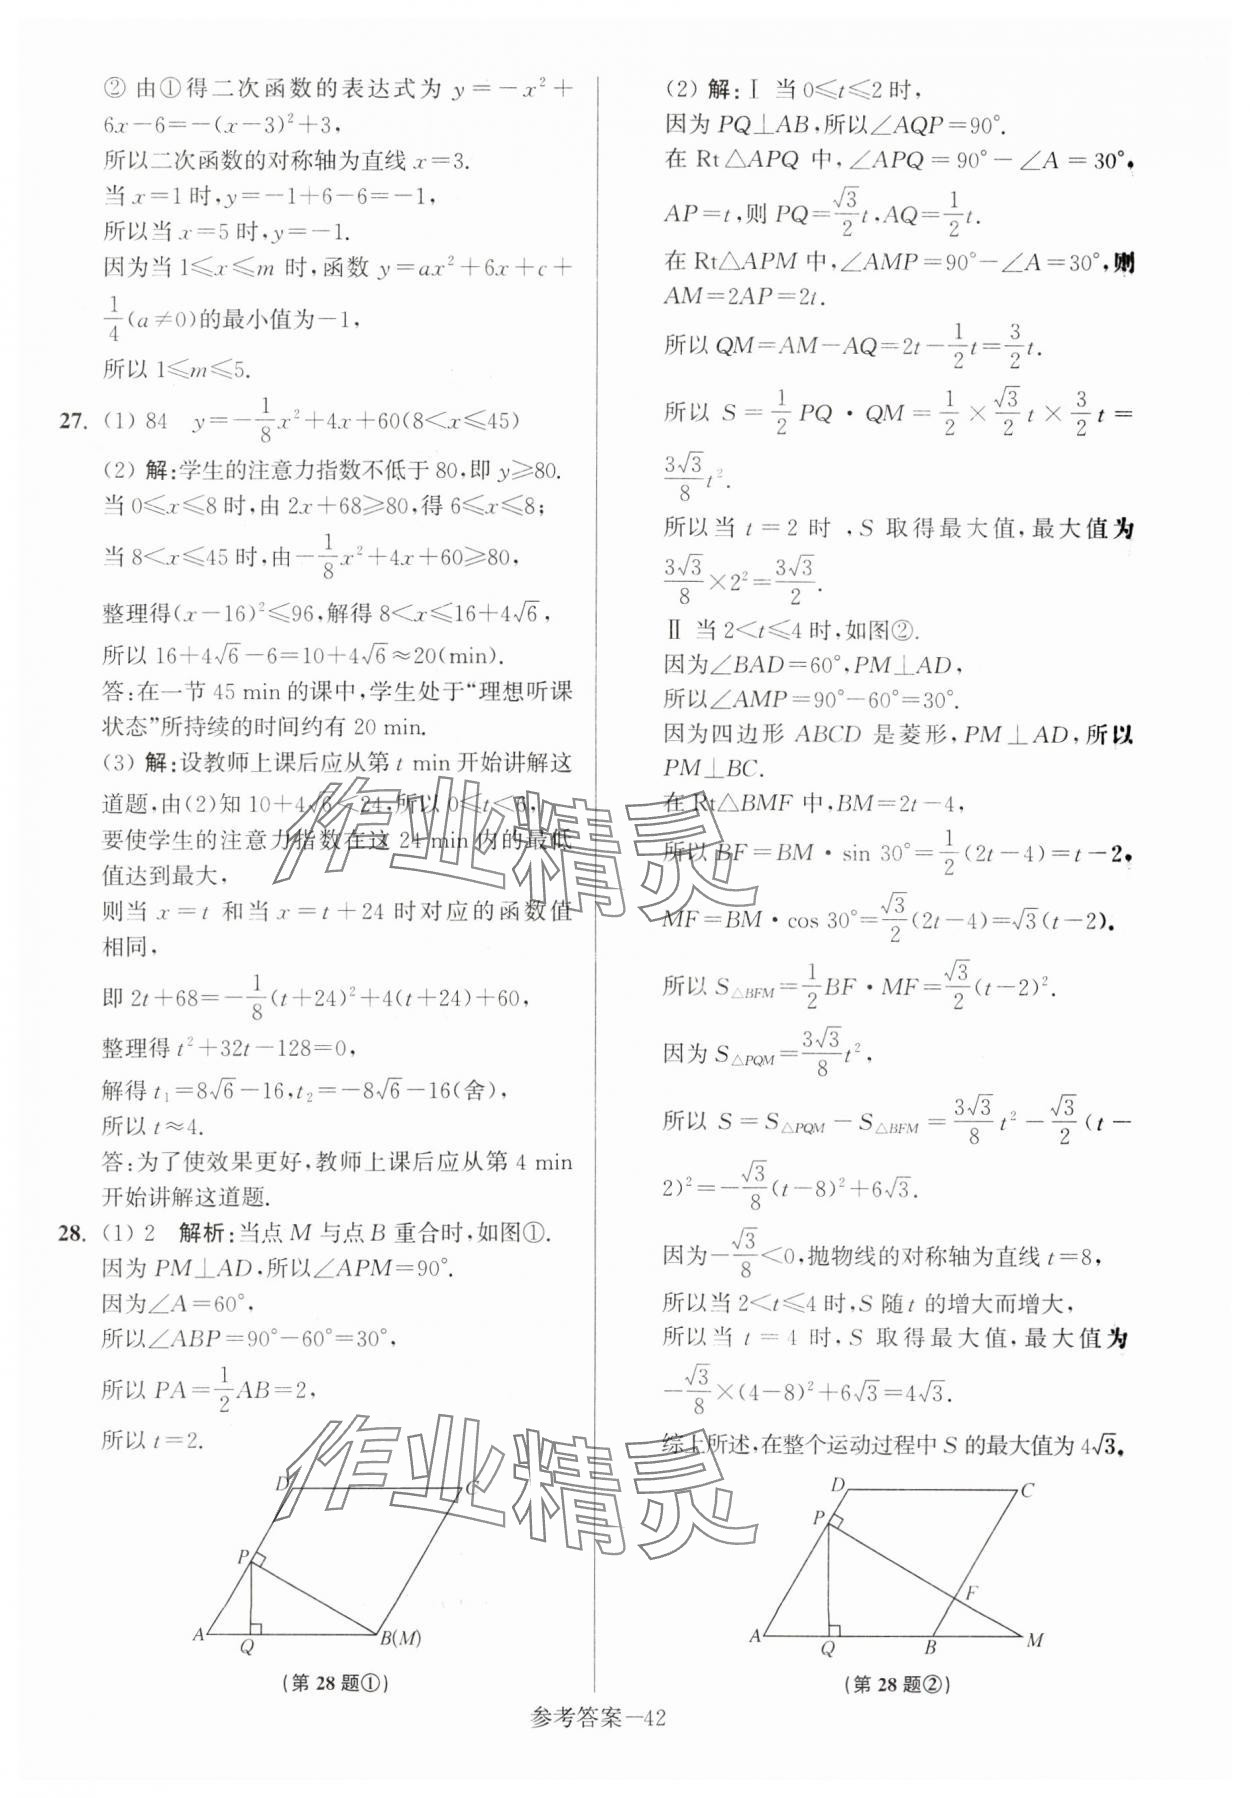 ② 由①得二次函数的表达式为 y=-x²+
6x-6=-(x-3)²+3,
所以二次函数的对称轴为直线 x=3.
当 x=1 时,y=-1+6-6=-1,
所以当 x=5 时,y=-1.
因为当 1≤x≤m 时,函数 y=ax²+6x+c+
1/4(a≠0)的最小值为-1,
所以 1≤m≤5.
27. (1) 84 y=-1/8x²+4x+60(8<x≤45)
(2) 解:学生的注意力指数不低于 80,即 y≥80.
当 0≤x≤8 时,由 2x+68≥80,得 6≤x≤8;
当 8<x≤45 时,由-1/8x²+4x+60≥80,
整理得(x-16)²≤96,解得 8<x≤16+4√6,
所以 16+4√6-6=10+4√6≈20(min).
答:在一节 45 min 的课中,学生处于“理想听课
状态”所持续的时间约有 20 min.
(3) 解:设教师上课后应从第 t min 开始讲解这
道题,由(2)知 10+4√6<24,所以 0≤t<6,
要使学生的注意力指数在这 24 min 内的最低
值达到最大,
则当 x=t 和当 x=t+24 时对应的函数值
相同,
即 2t+68=-1/8(t+24)²+4(t+24)+60,
整理得 t²+32t-128=0,
解得 t₁=8√6-16,t₂=-8√6-16(舍),
所以 t≈4.
答:为了使效果更好,教师上课后应从第 4 min
开始讲解这道题.
28. (1) 2 解析:当点 M 与点 B 重合时,如图①.
因为 PM⊥AD,所以∠APM=90°.
因为∠A=60°,
所以∠ABP=90°-60°=30°,
所以 PA=1/2AB=2,
所以 t=2.
D C
P
A Q B(M)
(第 28 题①)
(2) 解:Ⅰ 当 0≤t≤2 时,
因为 PQ⊥AB,所以∠AQP=90°.
在 Rt△APQ 中,∠APQ=90°-∠A=30°,
AP=t,则 PQ=√3/2t,AQ=1/2t.
在 Rt△APM 中,∠AMP=90°-∠A=30°,则
AM=2AP=2t.
所以 QM=AM-AQ=2t-1/2t=3/2t.
所以 S=1/2PQ·QM=1/2×√3/2t×3/2t=
3√3/8t².
所以当 t=2 时,S 取得最大值,最大值为
3√3/8×2²=3√3/2.
Ⅱ 当 2<t≤4 时,如图②.
因为∠BAD=60°,PM⊥AD,
所以∠AMP=90°-60°=30°.
因为四边形 ABCD 是菱形,PM⊥AD,所以
PM⊥BC.
在 Rt△BMF 中,BM=2t-4,
所以 BF=BM·sin 30°=1/2(2t-4)=t-2,
MF=BM·cos 30°=√3/2(2t-4)=√3(t-2).
所以 S△BFM=1/2BF·MF=√3/2(t-2)².
因为 S△PQM=3√3/8t²,
所以 S=S△PQM-S△BFM=3√3/8t²-√3/2(t-
2)²=-√3/8(t-8)²+6√3.
因为-√3/8<0,抛物线的对称轴为直线 t=8,
所以当 2<t≤4 时,S 随 t 的增大而增大,
所以当 t=4 时,S 取得最大值,最大值为
-√3/8×(4-8)²+6√3=4√3.
综上所述,在整个运动过程中 S 的最大值为 4√3.
D C
P
F
A Q B M
(第 28 题②)
作业精灵
作业精灵
参考答案—42